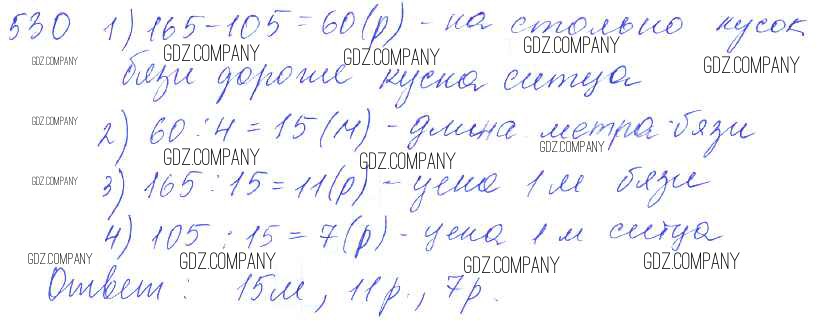 530 1) 165-105=60(р) - на столько кусок
GDZ.COMPANY GDZ.COMPANY GDZ.COMPANY GDZ.COMPANY GDZ.COMPANY
бязи дороже куска ситца
GDZ.COMPANY
2) 60:4=15(м) - длина метра бязи
GDZ.COMPANY GDZ.COMPANY GDZ.COMPANY
GDZ.COMPANY 3) 165:15=11(р) - цена 1м бязи
4) 105:15=7(р) - цена 1м ситца
GDZ.COMPANY GDZ.COMPANY GDZ.COMPANY GDZ.COMPANY
Ответ: 15м, 11р., 7р.